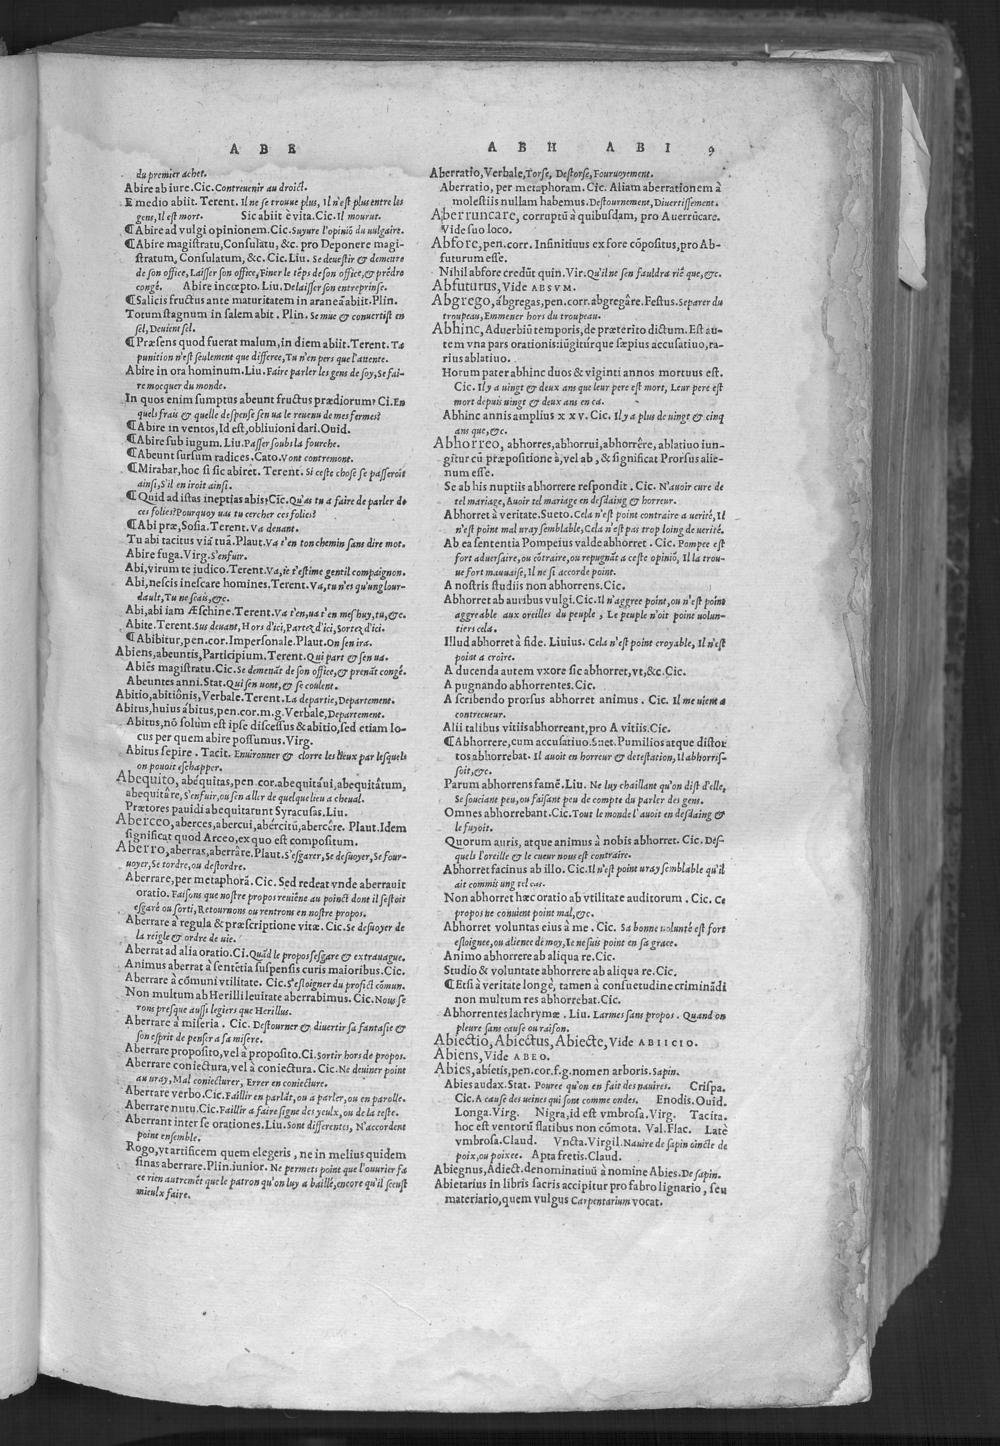 A B E
du premier achet.
Abire ab iure. Cic. Contreuenir au droict.
E medio abiit. Terent. Il ne se trouue plus, il n'est plus entre les
gens, il est mort. Sic abiit è vita. Cic. Il mourut.
¶ Abire ad vulgi opinionem. Cic. Suyure l'opiniõ du uulgaire.
¶ Abire magistratu, Consulatu, &c. pro Deponere magi-
stratum, Consulatum, &c. Cic. Liu. Se deuestir & demeure
de son office, Laisser son office, Finer le tẽps de son office, & prẽdre
congé. Abire incœpto. Liu. Delaisser son entreprinse.
¶ Salicis fructus ante maturitatem in araneã abiit. Plin.
Totum stagnum in salem abit. Plin. Se mue & conuertist en
sel, Deuient sel.
¶ Præsens quod fuerat malum, in diem abiit. Terent. Ta
punition n'est seulement que differee, Tu n'en pers que l'attente.
Abire in ora hominum. Liu. Faire parler les gens de soy, Se fai-
re mocquer du monde.
In quos enim sumptus abeunt fructus prædiorum? Ci. En
quels frais & quelle despense sen ua le reuenu de mes fermes?
¶ Abire in ventos, Id est, obliuioni dari. Ouid.
¶ Abire sub iugum. Liu. Passer soubs la fourche.
¶ Abeunt sursum radices. Cato. Vont contremont.
¶ Mirabar, hoc si sic abiret. Terent. Si ceste chose se passeroit
ainsi, S'il en iroit ainsi.
¶ Quid ad istas ineptias abis? Cic. Qu'as tu a faire de parler de
ces folies? Pourquoy uas tu cercher ces folies?
¶ Abi præ, Sosia. Terent. Va deuant.
Tu abi tacitus viã tuã. Plaut. Va t'en ton chemin sans dire mot.
Abire fuga. Virg. S'enfuir.
Abi, virum te iudico. Terent. Va, ie t'estime gentil compaignon.
Abi, nescis inescare homines. Terent. Va, tu n'es qu'ung lour-
dault, Tu ne scais, &c.
Abi, abi iam Æschine. Terent. Va t'en, ua t'en meshuy, tu, &c.
Abite. Terent. Sus deuant, Hors d'ici, Partez d'ici, Sortez d'ici.
¶ Abibitur, pen. cor. Impersonale. Plaut. On sen ira.
Abiens, abeuntis, Participium. Terent. Qui part & sen ua.
Abiẽs magistratu. Cic. Se demettãt de son office, & prenãt congé.
Abeuntes anni. Stat. Qui sen uont, & se coulent.
Abitio, abitiônis, Verbale. Terent. La departie, Departement.
Abitus, huius ábitus, pen. cor. m. g. Verbale, Departement.
Abitus, nõ solùm est ipse discessus & abitio, sed etiam lo-
cus per quem abire possumus. Virg.
Abitus sepire. Tacit. Enuironner & clorre les lieux par lesquels
on pouoit eschapper.
Abequito, abéquitas, pen. cor. abequitáui, abequitâtum,
abequitâre, S'enfuir, ou sen aller de quelque lieu a cheual.
Prætores pauidi abequitarunt Syracusas. Liu.
Aberceo, aberces, abercui, abércitũ, abercêre. Plaut. Idem
significat quod Arceo, ex quo est compositum.
Aberro, aberras, aberrâre. Plaut. S'esgarer, Se desuoyer, Se four-
uoyer, Se tordre, ou destordre.
Aberrare, per metaphorã. Cic. Sed redeat vnde aberrauit
oratio. Faisons que nostre propos reuiẽne au poinct dont il s'estoit
esgaré ou sorti, Retournons ou rentrons en nostre propos.
Aberrare à regula & præscriptione vitæ. Cic. Se desuoyer de
la reigle & ordre de uie.
Aberrat ad alia oratio. Ci. Quãd le propos sesgare & extrauague.
Animus aberrat à sentẽtia suspensis curis maioribus. Cic.
Aberrare à cõmuni vtilitate. Cic. S'esloigner du profict cõmun.
Non multum ab Herilli leuitate aberrabimus. Cic. Nous se
rons presque aussi legiers que Herillus.
Aberrare à miseria. Cic. Destourner & diuertir sa fantasie &
son esprit de penser a sa misere.
Aberrare proposito, vel à proposito. Ci. Sortir hors de propos.
Aberrare coniectura, vel à coniectura. Cic. Ne deuiner point
au uray, Mal coniecturer, Errer en coniecture.
Aberrare verbo. Cic. Faillir en parlãt, ou a parler, ou en parolle.
Aberrare nutu. Cic. Faillir a faire signe des yeulx, ou de la teste.
Aberrant inter se orationes. Liu. Sont differentes, N'accordent
point ensemble.
Rogo, vt artificem quem elegeris, ne in melius quidem
sinas aberrare. Plin. iunior. Ne permets point que l'ouurier fa
ce rien autremẽt que le patron qu'on luy a baillé, encore qu'il sceust
mieulx faire.
A B H A B I 9
Aberratio, Verbale, Torse, Destorse, Fouruoyement.
Aberratio, per metaphoram. Cic. Aliam aberrationem à
molestiis nullam habemus. Destournement, Diuertissement.
Aberruncare, corruptũ à quibusdam, pro Auerrũcare.
Vide suo loco.
Abfore, pen. corr. Infinitiuus ex fore cõpositus, pro Ab-
futurum esse.
Nihil abfore credũt quin. Vir. Qu'il ne sen fauldra riẽ que, &c.
Abfuturus, Vide ABSVM.
Abgrego, ábgregas, pen. corr. abgregâre. Festus. Separer du
troupeau, Emmener hors du troupeau.
Abhinc, Aduerbiũ temporis, de præterito dictum. Est au-
tem vna pars orationis: iũgitúrque sæpius accusatiuo, ra-
rius ablatiuo.
Horum pater abhinc duos & viginti annos mortuus est.
Cic. Il y a uingt & deux ans que leur pere est mort, Leur pere est
mort depuis uingt & deux ans en ca.
Abhinc annis amplius x x v. Cic. Il y a plus de uingt & cinq
ans que, &c.
Abhorreo, abhorres, abhorrui, abhorrêre, ablatiuo iun-
gitur cũ præpositione à, vel ab, & significat Prorsus alie-
num esse.
Se ab his nuptiis abhorrere respondit. Cic. N'auoir cure de
tel mariage, Auoir tel mariage en desdaing & horreur.
Abhorret à veritate. Sueto. Cela n'est point contraire a uerité, Il
n'est point mal uray semblable, Cela n'est pas trop loing de uerité.
Ab ea sententia Pompeius valde abhorret. Cic. Pompee est
fort aduersaire, ou cõtraire, ou repugnãt a ceste opiniõ, Il la trou-
ue fort mauuaise, Il ne si accorde point.
A nostris studiis non abhorrens. Cic.
Abhorret ab auribus vulgi. Cic. Il n'aggree point, ou n'est point
aggreable aux oreilles du peuple, Le peuple n'oit point uolun-
tiers cela.
Illud abhorret à fide. Liuius. Cela n'est point croyable, Il n'est
point a croire.
A ducenda autem vxore sic abhorret, vt, &c. Cic.
A pugnando abhorrentes. Cic.
A scribendo prorsus abhorret animus. Cic. Il me uient a
contrecueur.
Alii talibus vitiis abhorreant, pro A vitiis. Cic.
¶ Abhorrere, cum accusatiuo. Suet. Pumilios atque distor
tos abhorrebat. Il auoit en horreur & detestation, Il abhorris-
soit, &c.
Parum abhorrens famẽ. Liu. Ne luy chaillant qu'on dist d'elle,
Se souciant peu, ou faisant peu de compte du parler des gens.
Omnes abhorrebant. Cic. Tout le monde l'auoit en desdaing &
le fuyoit.
Quorum auris, atque animus à nobis abhorret. Cic. Des-
quels l'oreille & le cueur nous est contraire.
Abhorret facinus ab illo. Cic. Il n'est point uray semblable qu'il
ait commis ung tel cas.
Non abhorret hæc oratio ab vtilitate auditorum. Cic. Ce
propos ne conuient point mal, &c.
Abhorret voluntas eius à me. Cic. Sa bonne uolunté est fort
esloignee, ou alienee de moy, Ie ne suis point en sa grace.
Animo abhorrere ab aliqua re. Cic.
Studio & voluntate abhorrere ab aliqua re. Cic.
¶ Etsi à veritate longè, tamen à consuetudine criminãdi
non multum res abhorrebat. Cic.
Abhorrentes lachrymæ. Liu. Larmes sans propos. Quand on
pleure sans cause ou raison.
Abiectio, Abiectus, Abiecte, Vide ABIICIO.
Abiens, Vide ABEO.
Abies, abietis, pen. cor. f. g. nomen arboris. Sapin.
Abies audax. Stat. Pource qu'on en fait des nauires. Crispa.
Cic. A cause des ueines qui sont comme ondes. Enodis. Ouid.
Longa. Virg. Nigra, id est vmbrosa. Virg. Tacita.
hoc est ventorũ flatibus non cõmota. Val. Flac. Latè
vmbrosa. Claud. Vncta. Virgil. Nauire de sapin oincte de
poix, ou poixee. Apta fretis. Claud.
Abiegnus, Adiect. denominatiuũ à nomine Abies. De sapin.
Abietarius in libris sacris accipitur pro fabro lignario, seu
materiario, quem vulgus Carpentarium vocat.